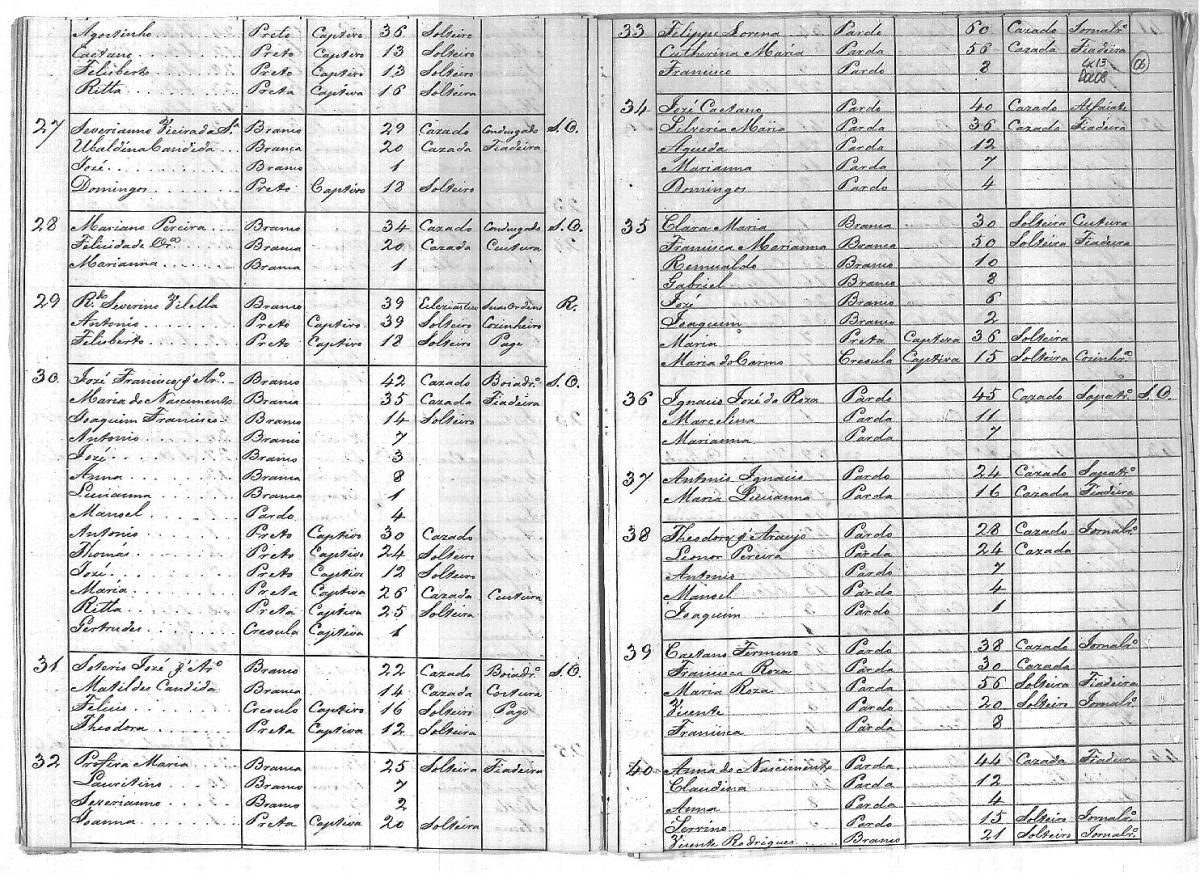 Agostinho Preto Captivo 36 Solteiro
Caetano Preto Captivo 13 Solteiro
Felisberto Preto Captivo 13 Solteiro
Ritta Preta Captiva 16 Solteira
27 Severianno Vieira da Sª Branco 29 Cazado S.O.
Ubaldina Candida Branca 20 Cazada Fiadeira
Jozé Branco 1
Domingos Preto Captivo 18 Solteiro
28 Mariano Pereira Branco 34 Cazado S.O.
Felicidade Branca 20 Cazada Custura
Marianna Branca 1
29 R.do Severino Vilella Branco 39 R.
Antonio Preto Captivo 39 Solteiro Cozinheiro
Felisberto Preto Captivo 18 Solteiro Page
30 Jozé Francisco d'Arº Branco 42 Cazado Boiadrº S.O.
Maria do Nascimento Branca 35 Cazada Fiadeira
Joaquim Francisco Branco 14 Solteiro
Antonio Branco 7
Jozé Branco 3
Anna Branca 8
Lucianna Branca 1
Manoel Pardo 4
Antonio Preto Captivo 30 Cazado
Thomas Preto Captivo 24 Solteiro
Jozé Preto Captivo 12 Solteiro
Maria Preta Captiva 26 Cazada Custura
Ritta Preta Captiva 25 Solteira
Gertrudes Creoula Captiva 1
31 Soterio Jozé d'Arº Branco 22 Cazado Boiadrº S.O.
Matildes Candida Branca 14 Cazada Costura
Felicio Creoulo Captivo 16 Solteiro Page
Theodora Preta Captiva 12 Solteira
32 Maria Branca 25 Solteira Fiadeira
Lauritino Branco 7
Severianno Branco 2
Joanna Preta Captiva 20 Solteira
33 Felippe Lorena Pardo 60 Cazado Jornalrº
Catherina Maria Parda 56 Cazada Fiadeira
Francisco Pardo 8
Cx 13
Doc 08
06
34 Jozé Caetano Pardo 40 Cazado Alfaiate
Silveria Maria Parda 36 Cazada Fiadeira
Agueda Parda 12
Marianna Parda 7
Domingos Pardo 4
35 Clara Maria Branca 30 Solteira Custura
Francisca Marianna Branca 50 Solteira Fiadeira
Remualdo Branco 10
Gabriel Branco 8
Jozé Branco 6
Joaquim Branco 2
Maria Preta Captiva 36 Solteira
Maria do Carmo Creoula Captiva 15 Solteira Cozinhrª
36 Ignacio Jozé da Roza Pardo 45 Cazado Sapatrº S.O.
Marcelina Parda 11
Marianna Parda 7
37 Antonio Ignacio Pardo 24 Cazado Sapatrº
Maria Lucianna Parda 16 Cazada Fiadeira
38 Theodoro d'Araujo Pardo 28 Cazado Jornalrº
Leonor Pereira Parda 24 Cazada
Antonio Pardo 7
Manoel Pardo 4
Joaquim Pardo 1
39 Caetano Fermino Pardo 38 Cazado Jornalrº
Francisca Roza Parda 30 Cazada
Maria Roza Parda 56 Solteira Fiadeira
Vicente Pardo 20 Solteiro Jornalrº
Francisca Parda 8
40 Anna do Nascimento Parda 44 Cazada Fiadeira
Claudina Parda 12
Anna Parda 4
Pardo 15 Solteiro Jornalrº
Vicente Rodrigues Branco 21 Solteiro Jornalrº